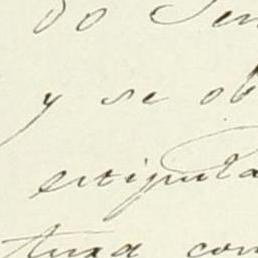 do Sen
y se ob
estipula
tura con